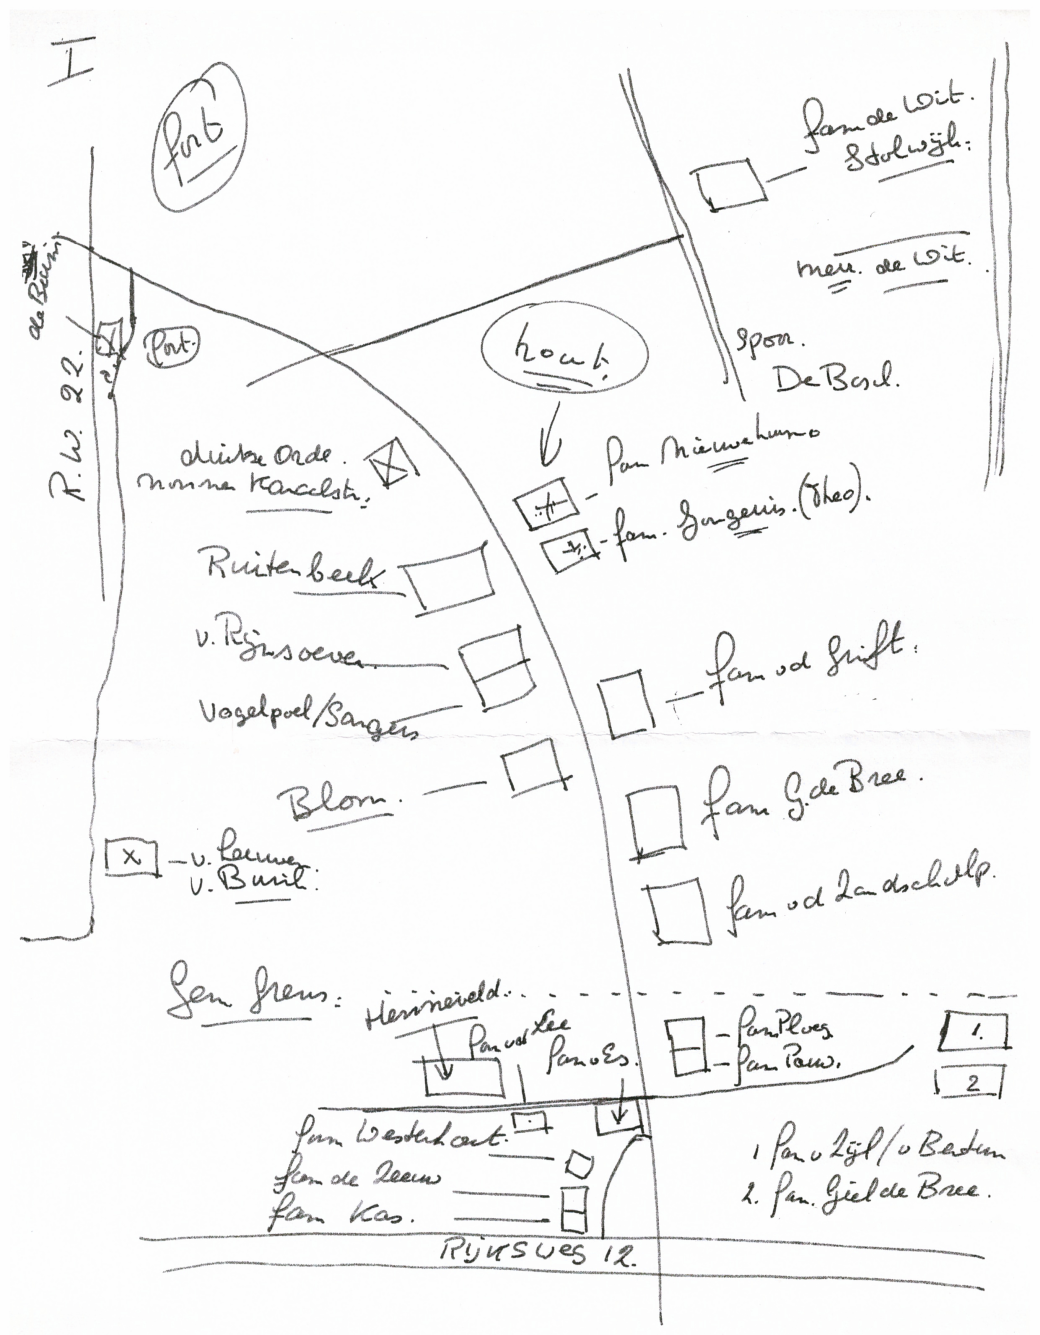 I
fort
fam de Wit.
Stolwijk.
mevr. de Wit.
de Bruin.
fort.
R.W. 22.
hout.
spoor.
De Basd.
duitse Orde.
nonnen Kanaalstr.
fam Nieuwehuns
fam. Jongerius. (Theo).
Ruitenbeek
v. Rijnsoever
Vogelpoel/Sangers
fam vd Grift.
Blom.
fam G. de Bree.
x
v. Leeuwen
v. Burik.
fam vd Landschulp.
Gem Grens:
Henneveld.
fam vd Lee
fam v Es.
fam Ploeg
fam Pouw.
1.
2
fam Westerhout.
fam de Leeuw
fam Kas.
1 fam v Zijl / v Bentum
2. fam. Giel de Bree.
Rijksweg 12.